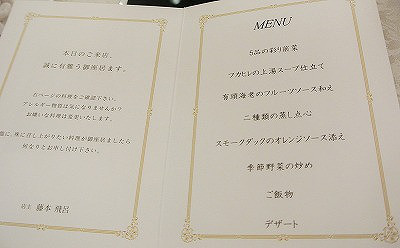 本日のご来店、
誠に有難う御座居ます。
右ページの料理をご確認下さい。
アレルギー物質は気になりませんか？
お嫌いな料理は変更いたします。
に、殊に召し上がりたい料理が御座居ましたら
何なりとお申し付け下さい。
店主 藤本 飛呂
MENU
5品の彩り前菜
フカヒレの上湯スープ仕立て
有頭海老のフルーツソース和え
二種類の蒸し点心
スモークダックのオレンジソース添え
季節野菜の炒め
ご飯物
デザート